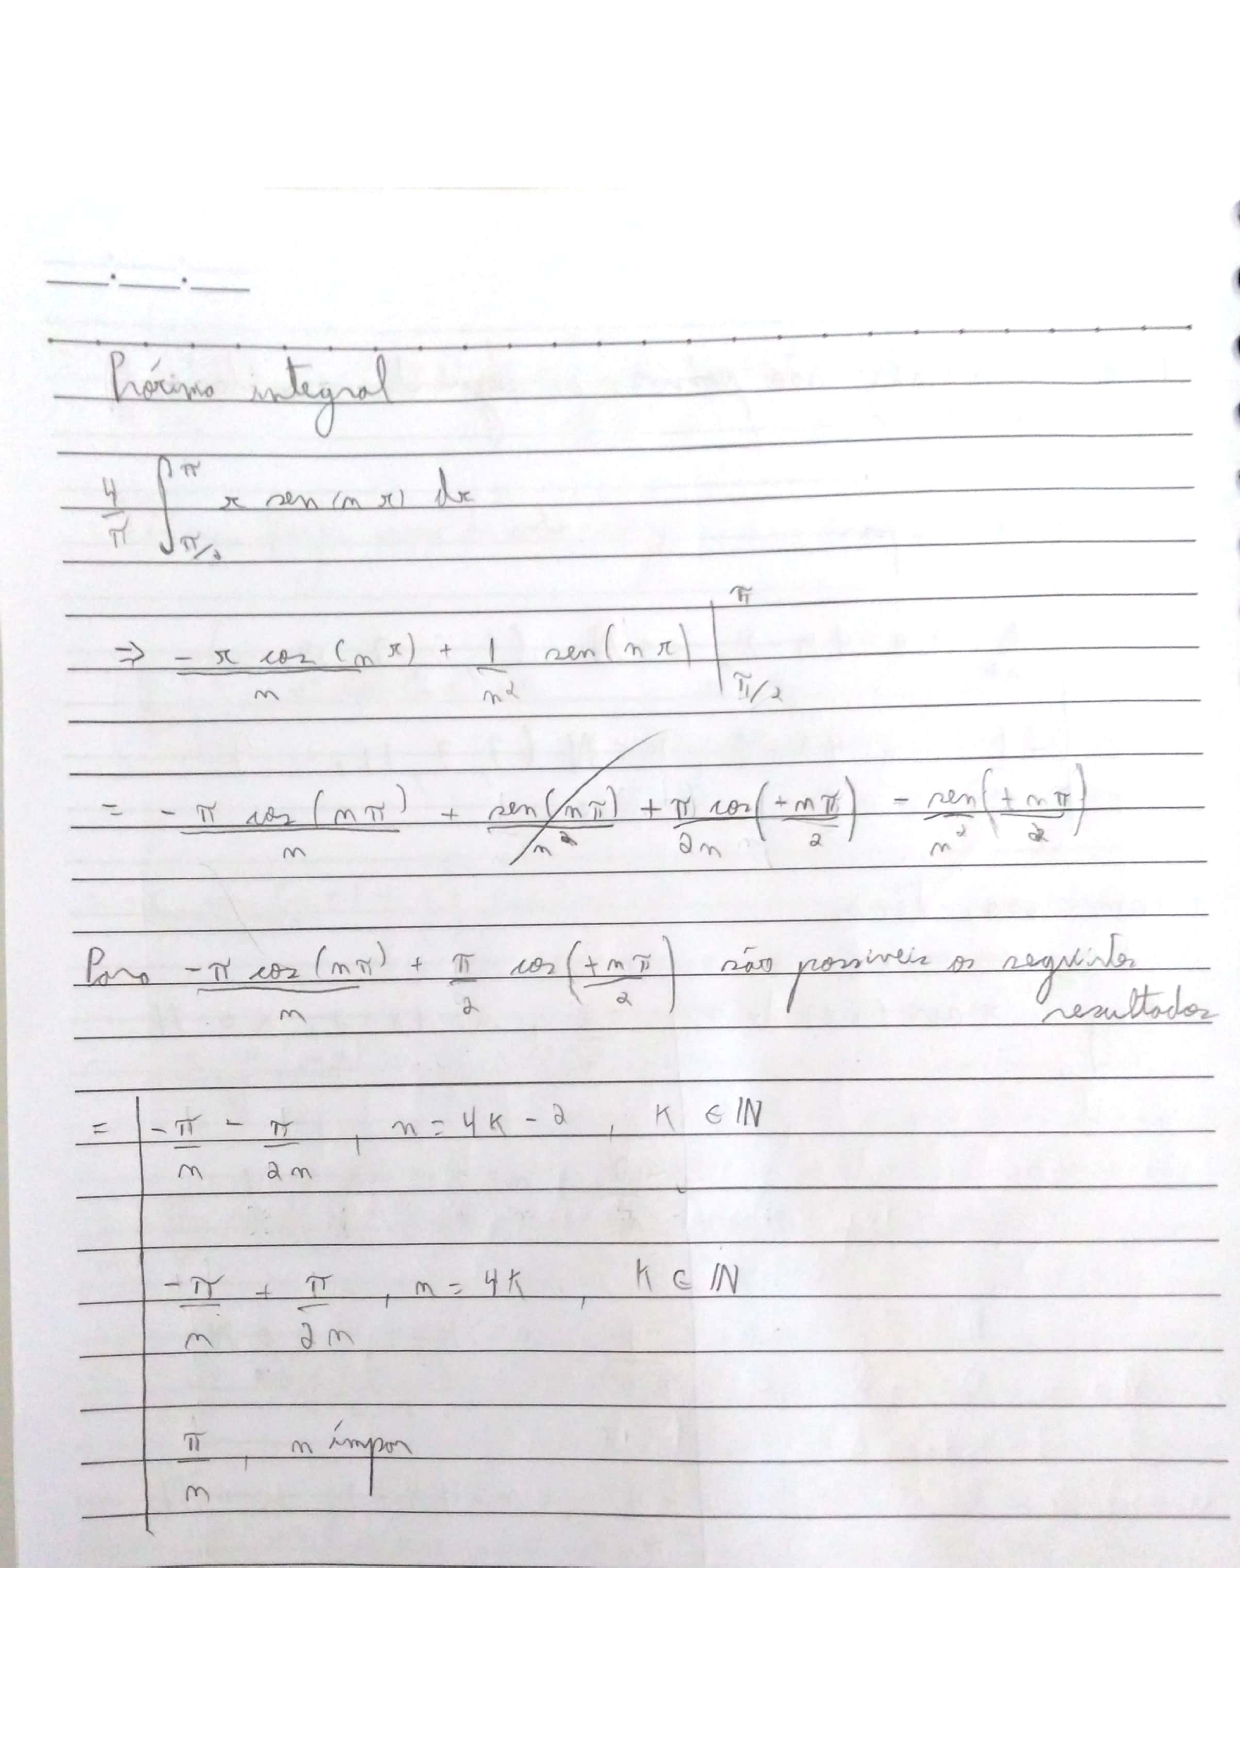 Próxima integral
4/π ∫_{π/2}^{π} x sen(nx) dx
⇒ -x cos(nx)/n + 1/n² sen(nx) |_{π/2}^{π}
= -π cos(nπ)/n + sen(nπ)/n² + π/2n cos(+nπ/2) - sen/n² (+nπ/2)
Para -π cos(nπ)/n + π/2 cos(+nπ/2) são possíveis os seguintes
resultados
= | -π/n - π/2n , n = 4K - 2 , K ∈ IN
-π/n + π/2n , n = 4K , K ∈ IN
π/n , n ímpar